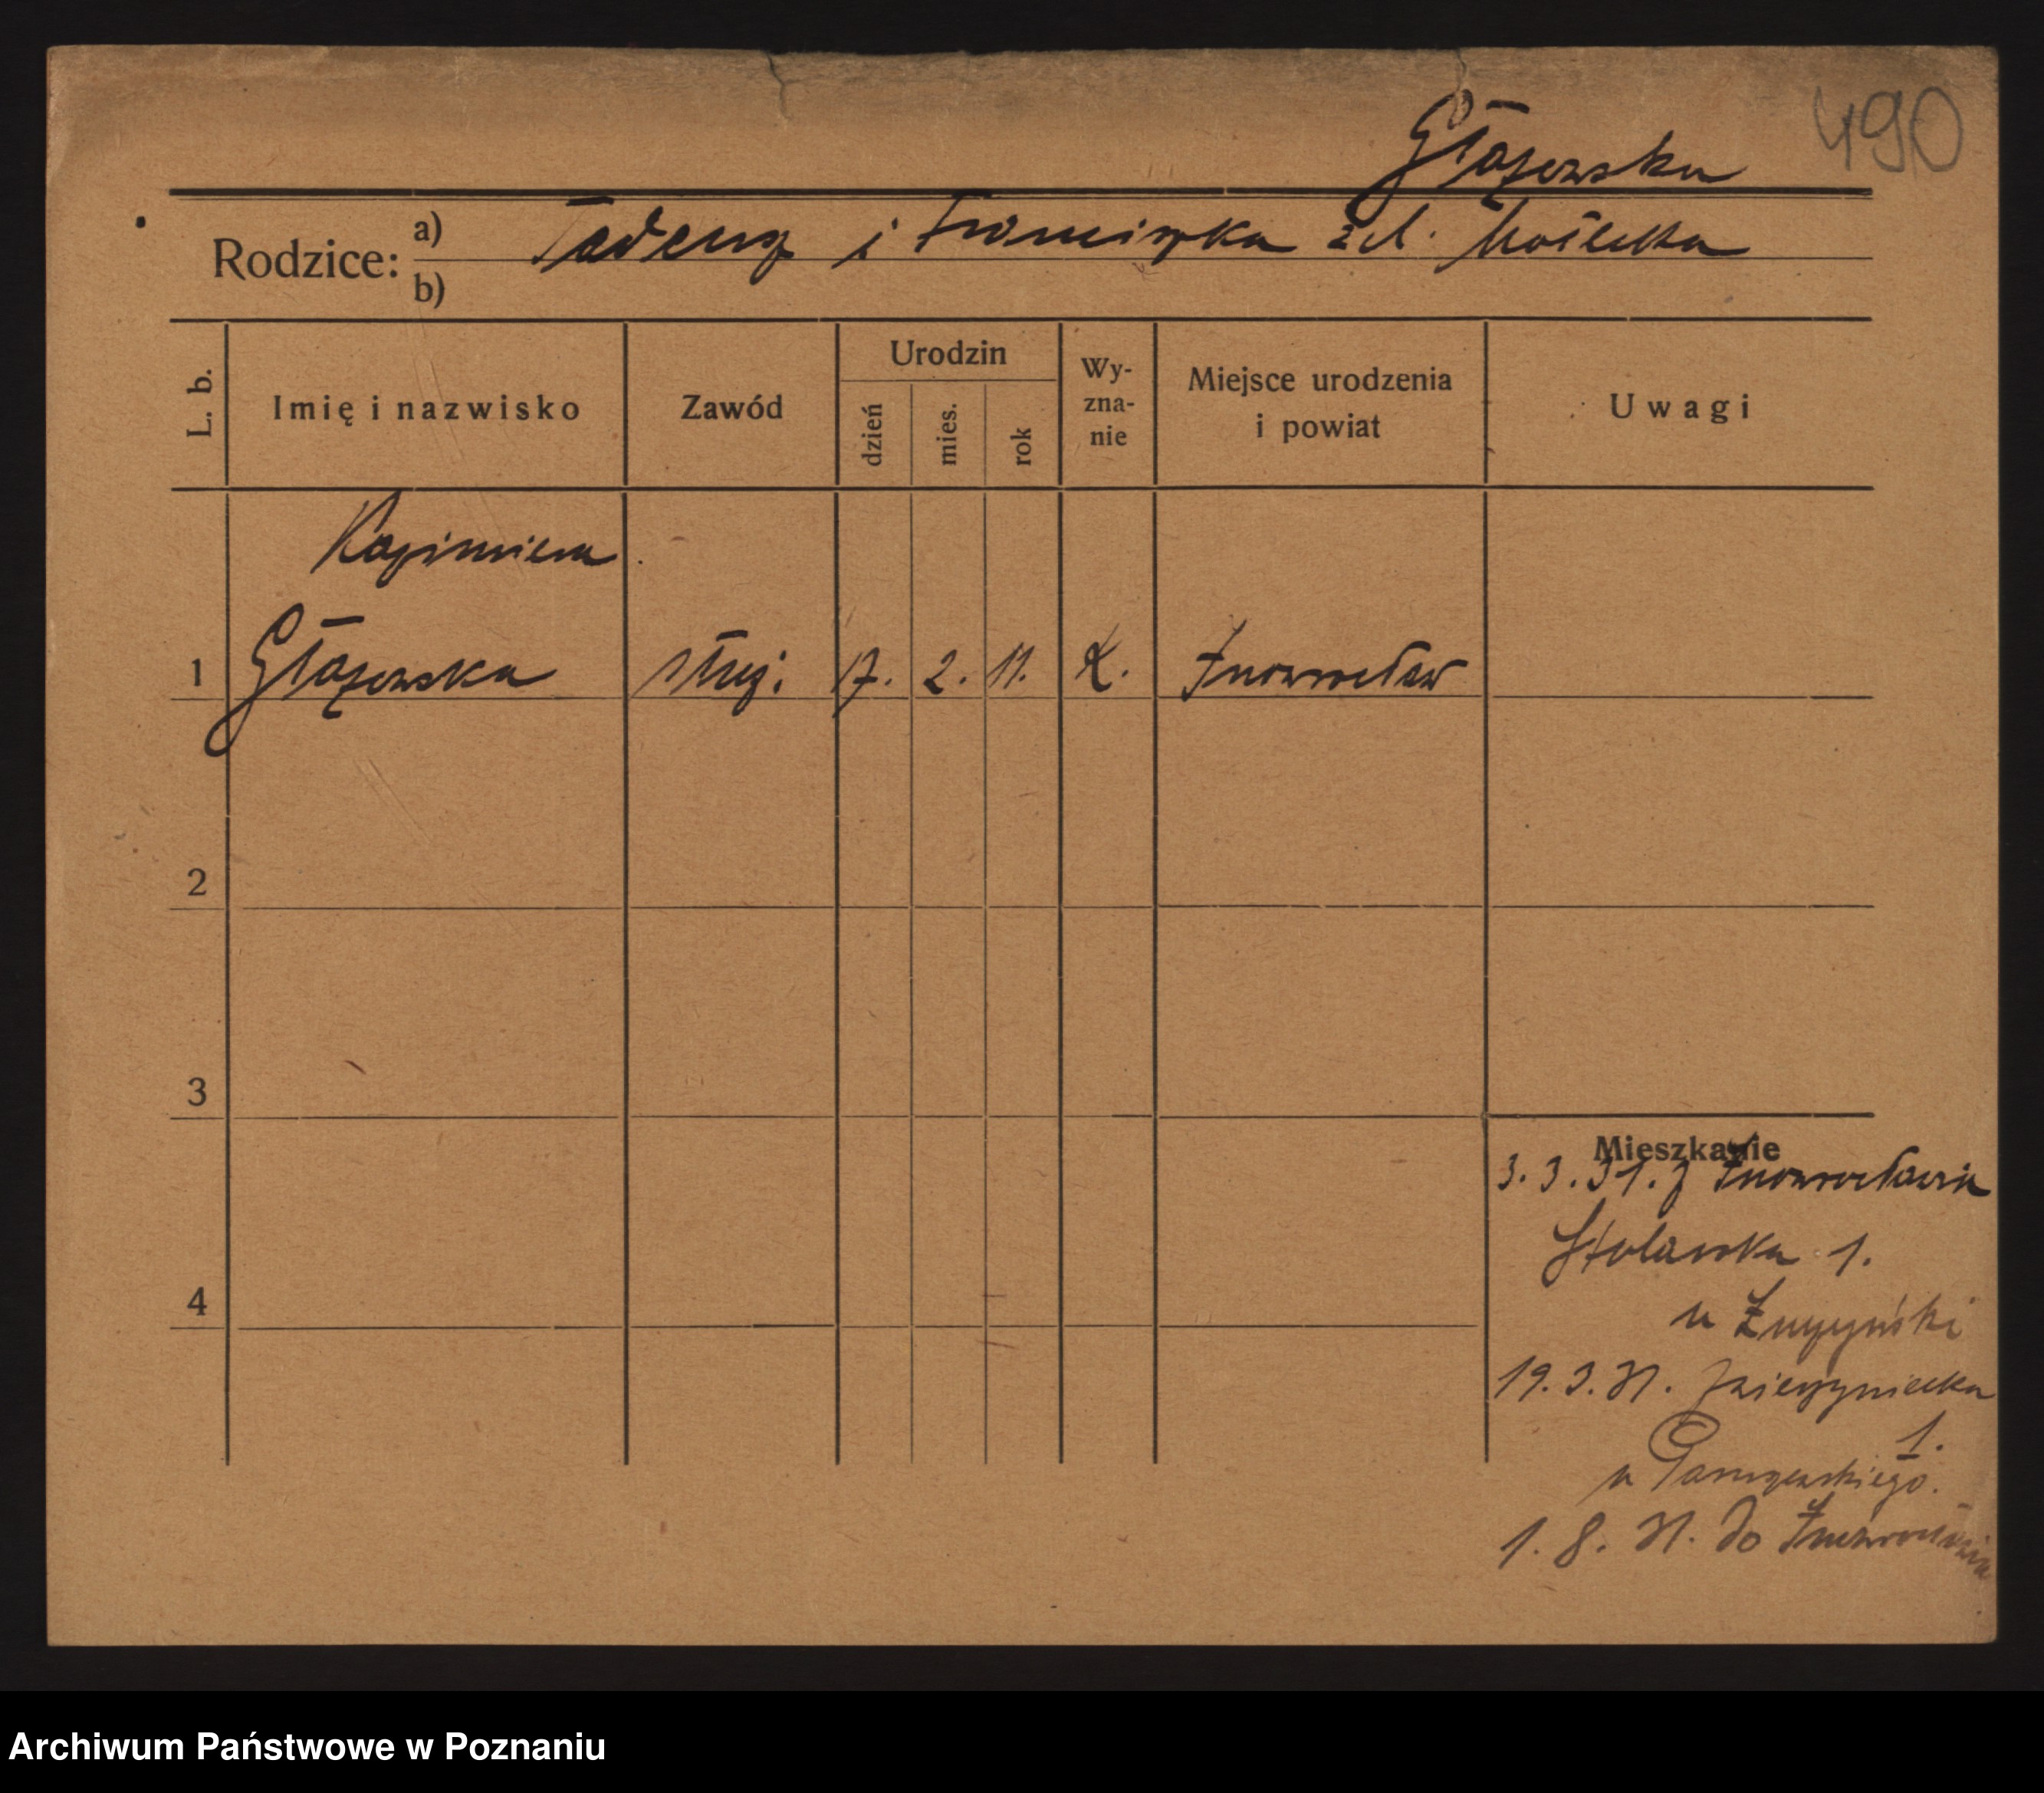 490
Głażewska
Rodzice: a) Tadeusz i Franciszka zd.
b)
L. b. Imię i nazwisko Zawód Urodzin dzień mies. rok Wy-zna-nie Miejsce urodzenia i powiat Uwagi
Kazimiera
1 Głażewska służ. 17. 2. 11. k. Inowrocław
2
3
Mieszkanie
3. 3. 31. z Inowrocławia
Stolarska 1.
4
u
19. 3. 31. Zwierzyniecka
1.
u
1. 8. 31. do Inowrocławia
Archiwum Państwowe w Poznaniu